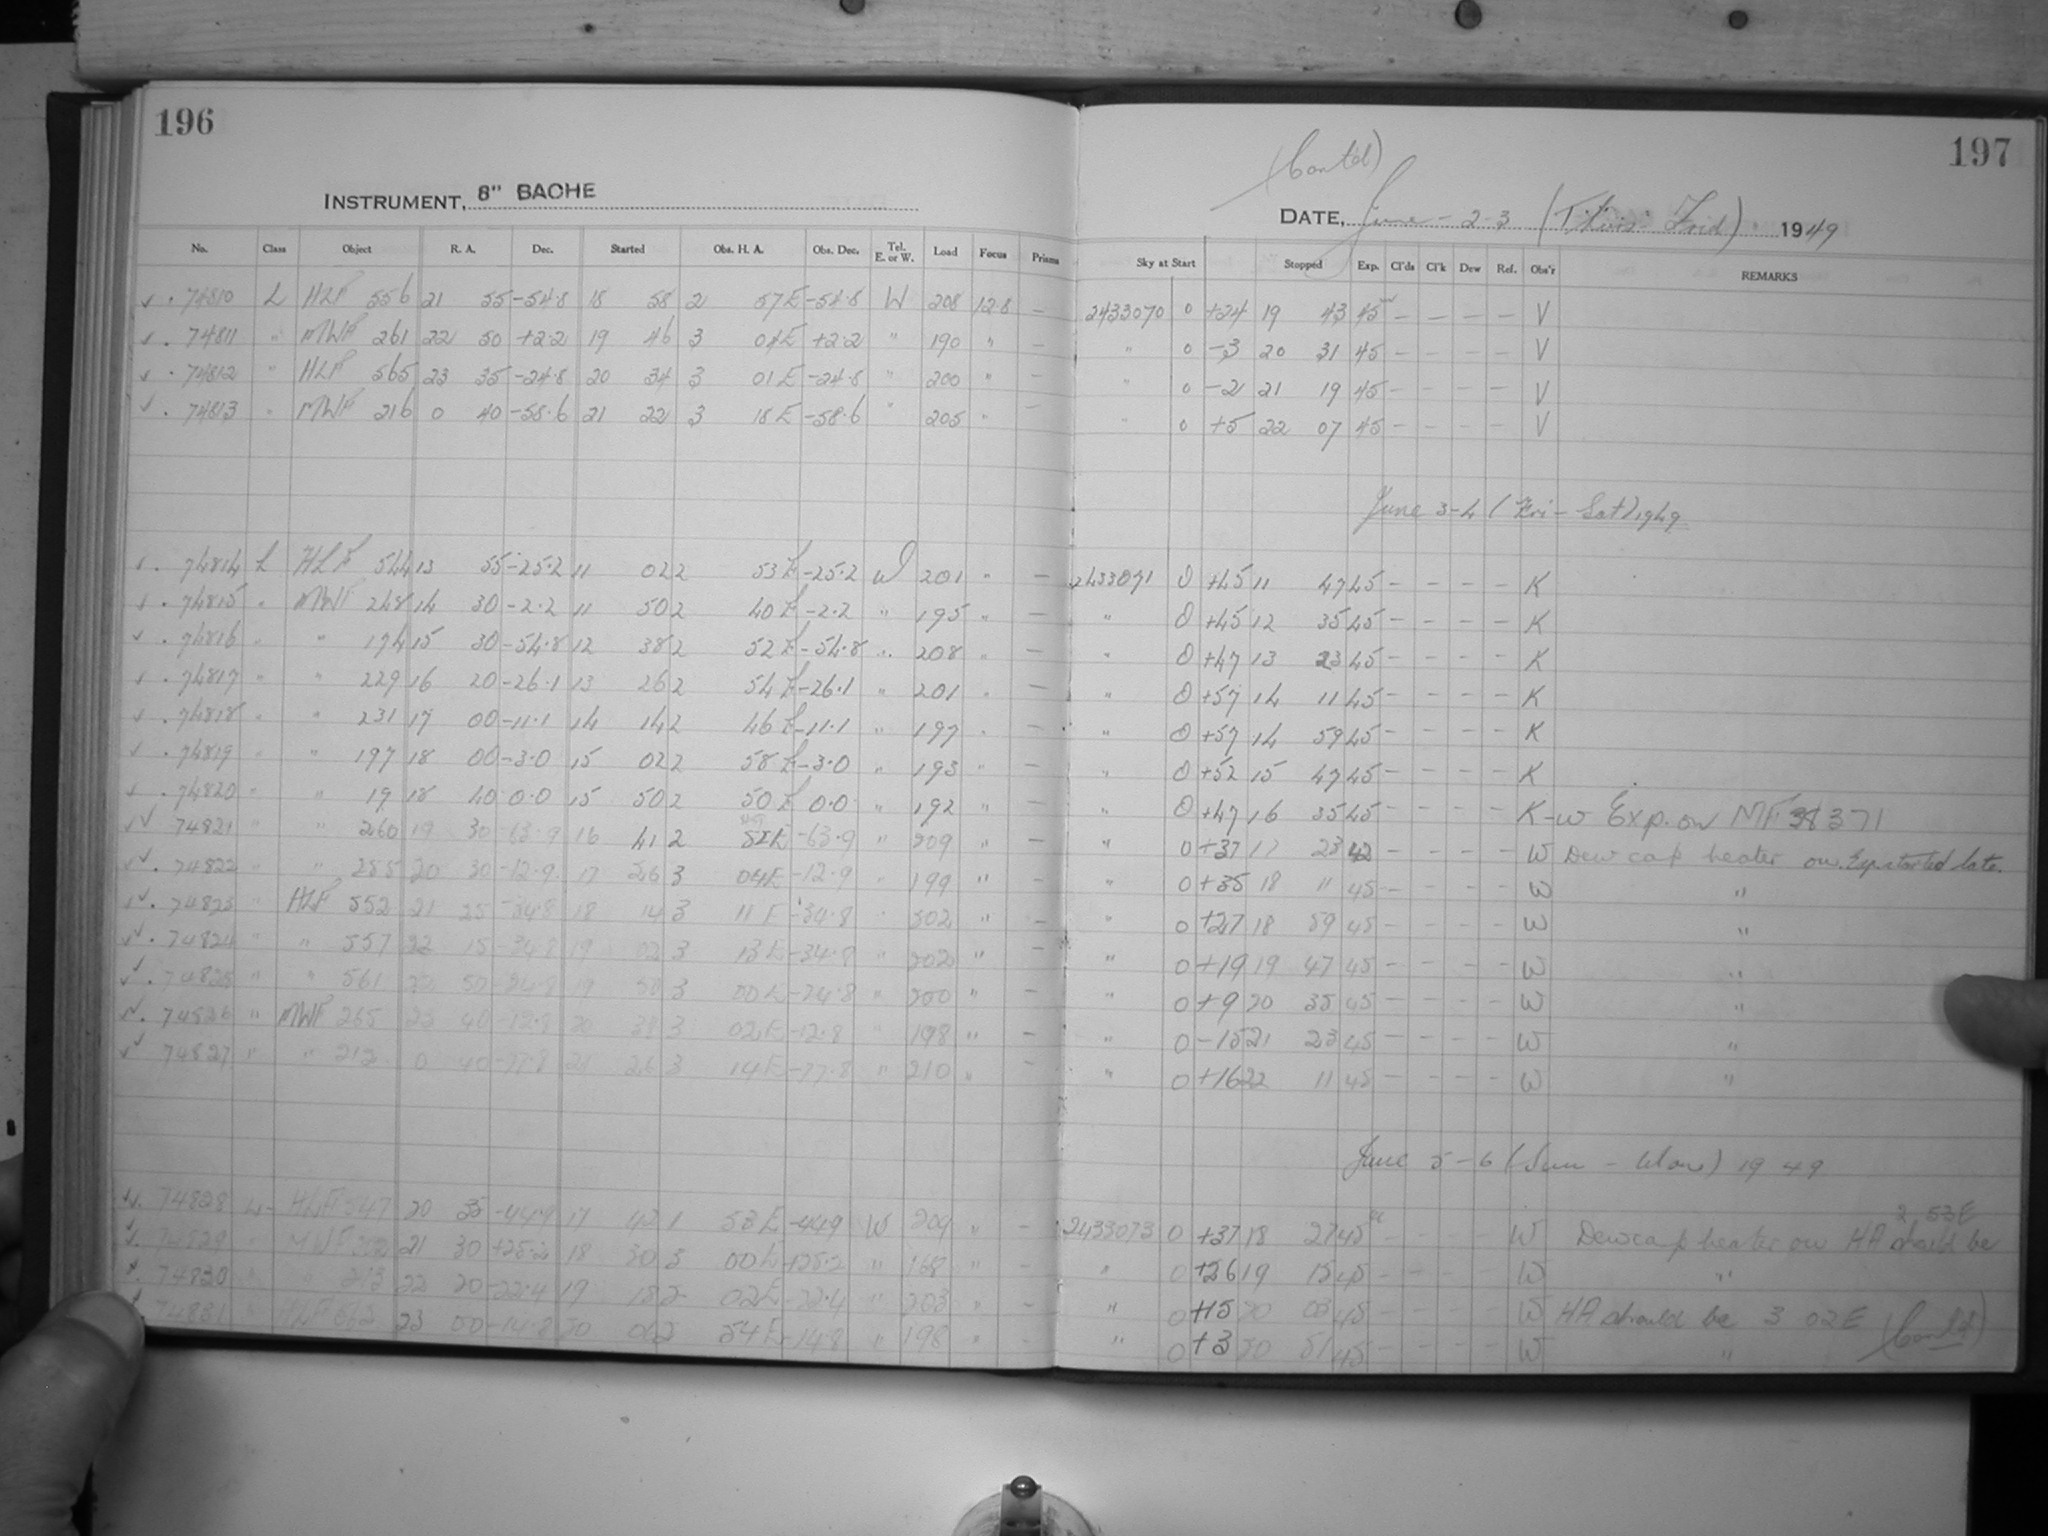 196
INSTRUMENT, 8" BACHE
No. Class Object R. A. Dec. Started Obs. H. A. Obs. Dec. Tel. E. or W. Load Focus Prisms
✓ . 74810 L HLF 556 21 55 -54.8 18 58 2 57E -54.8 W 208 12.8 —
✓ . 74811 " MWF 261 22 50 +2.2 19 46 3 04E +2.2 " 190 " —
✓ . 74812 " HLF 565 23 35 -24.8 20 34 3 01E -24.8 " 200 " —
✓ . 74813 " MWF 216 0 40 -58.6 21 22 3 18E -58.6 " 205 " —
✓ . 74814 L HLF 544 13 55 -25.2 11 02 2 53E -25.2 W 201 " —
✓ . 74815 " MWF 248 14 30 -2.2 11 50 2 40E -2.2 " 195 " —
✓ . 74816 " " 174 15 30 -54.8 12 38 2 52E -54.8 " 208 " —
✓ . 74817 " " 229 16 20 -26.1 13 26 2 54E -26.1 " 201 " —
✓ . 74818 " " 231 17 00 -11.1 14 14 2 46E -11.1 " 197 " —
✓ . 74819 " " 197 18 00 -3.0 15 02 2 58E -3.0 " 193 " —
✓ . 74820 " " 19 18 40 0.0 15 50 2 50E 0.0 " 192 " —
✓✓ 74821 " " 260 19 30 -63.9 16 41 2 -63.9 " 209 " —
✓✓ . 74822 " " 255 20 30 -12.9 17 26 3 04E -12.9 " 199 " —
✓✓ . 74823 " HLF 552 21 25 -34.8 18 14 3 11E -34.8 " 202 " —
✓✓ . 74824 " " 557 22 15 -34.8 19 02 3 13E -34.8 " 202 " —
✓✓ . 74825 " " 561 22 50 -24.8 19 50 3 00E -24.8 " 200 " —
✓✓ . 74826 " MWF 265 23 40 -12.8 20 38 3 02E -12.8 " 198 " —
✓✓ 74827 " " 212 0 40 -77.8 21 26 3 14E -77.8 " 210 " —
✓✓ . 74828 L HLF 547 20 35 -44.9 17 42 1 53E -44.9 W 204 " —
✓ . 74829 " MWF 21 30 +25.2 18 30 3 00E +25.2 " 168 " —
✓ . 74830 " " 213 22 20 -22.4 19 18 2 02E -22.4 " 203 " —
✓ 74831 " HLF 562 23 00 -14.8 20 06 2 54E -14.8 " 198 " —
197
(Cont'd)
DATE, June - 2-3 (Thurs - Frid) 1949
Sky at Start Stopped Exp. Cl'ds Cl'k Dew Ref. Obs'r REMARKS
2433070 0 +24 19 43 45 — — — — V
" 0 -3 20 31 45 — — — — V
" 0 -2 21 19 45 — — — — V
" 0 +5 22 07 45 — — — — V
June 3-4 (Fri - Sat) 1949
2433071 0 +45 11 47 45 — — — — K
" 0 +45 12 35 45 — — — — K
" 0 +47 13 23 45 — — — — K
" 0 +57 14 11 45 — — — — K
" 0 +57 14 59 45 — — — — K
" 0 +52 15 47 45 — — — — K
" 0 +47 16 35 45 — — — — K-W Exp. on MF 371
" 0 +37 17 23 42 — — — — W Dew cap heater on. Exp started late.
" 0 +35 18 11 45 — — — — W "
" 0 +27 18 59 45 — — — — W "
" 0 +19 19 47 45 — — — — W "
" 0 +9 20 35 45 — — — — W "
" 0 -15 21 23 45 — — — — W "
" 0 +16 22 11 45 — — — — W "
June 5-6 (Sun - Mon) 1949
2433073 0 +37 18 27 45 — — — — W Dewcap heater on HA should be 2 53E
" 0 +26 19 15 45 — — — — W "
" 0 +15 20 03 45 — — — — W HA should be 3 02E
" 0 +3 20 51 45 — — — — W " (Cont'd)